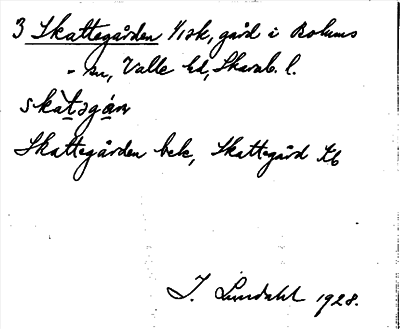 3 Skattegården 1/1 sk, gård i Bolums
- sn, Valle hd, Skarab. l.
skàtəgán
Skattegården bek, Skattegård Kb
I. Lundahl 1928.